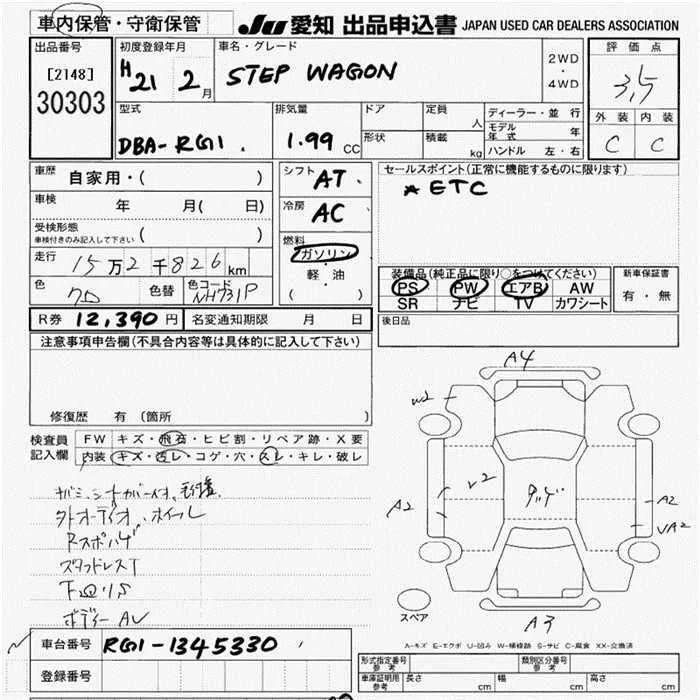 車内保管・守衛保管
JU 愛知 出品申込書 JAPAN USED CAR DEALERS ASSOCIATION
出品番号
[2148]
30303
初度登録年月
H21 2月
車名・グレード
STEP WAGON
2WD
・
4WD
評価点
3,5
外装 内装
C C
型式
DBA-RG1
排気量
1.99 CC
ドア
形状
定員 人
積載 kg
ディーラー・並行
モデル年式 年
ハンドル 左・右
車歴 自家用・( )
車検 年 月( 日)
受検形態
車検付きのみ記入して下さい ( )
走行 15万2千826km
色 色替 色コード NH731P
シフト AT
冷房 AC
燃料
ガソリン
軽油
( )
セールスポイント(正常に機能するものに限ります)
ETC
装備品(純正品に限り○をつけてください)
PS PW エアB AW
SR ナビ TV カワシート
新車保証書
有・無
R券 12,390円 名変通知期限 月 日
後日品
注意事項申告欄(不具合内容等は具体的に記入して下さい)
修復歴 有 (箇所 )
検査員記入欄
FW キズ・飛石・ヒビ割・リペア跡・X要
内装 キズ・汚レ・コゲ・穴・スレ・キレ・破レ
外オーディオ、ホイール
Rスポハゲ
スタッドレスT
ボディー AU
A4
W2
A2
V2
A2
VA2
A3
スペア
A-キズ E-エクボ U-凹み W-補修跡 S-サビ C-腐食 XX-交換済
車台番号 RG1-1345330
登録番号
型式指定番号 参考
類別区分番号 参考
車庫証明用 参考 長さ cm 幅 cm 高さ cm